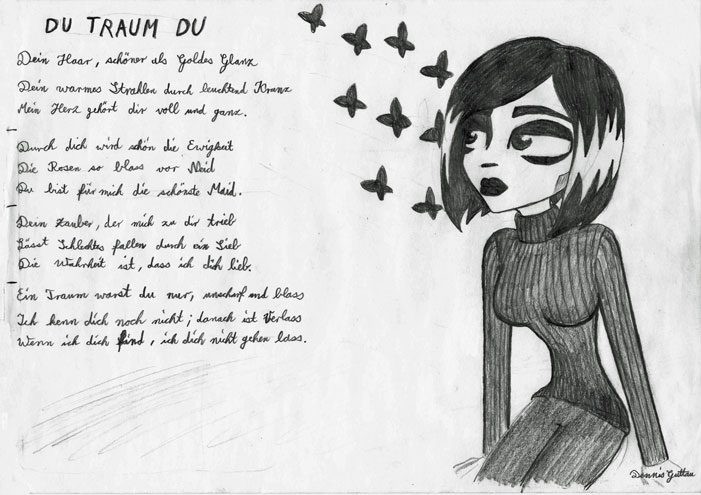 DU TRAUM DU
Dein Haar, schöner als Goldes Glanz
Dein warmes Strahlen durch leuchtend Kranz
Mein Herz gehört dir voll und ganz.
Durch dich wird schön die Ewigkeit
Die Rosen so blass vor Neid
Du bist für mich die schönste Maid.
Dein Zauber, der mich zu dir trieb
Lässt Schlechtes fallen durch ein Sieb
Die Wahrheit ist, dass ich dich lieb.
Ein Traum warst du nur, unscharf und blass
Ich kenn dich noch nicht; danach ist Verlass
Wenn ich dich find, ich dich nicht gehen lass.
Dennis